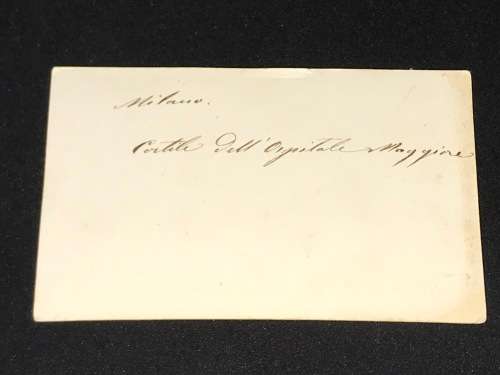 Milano.
Cortile dell'Ospitale Maggiore